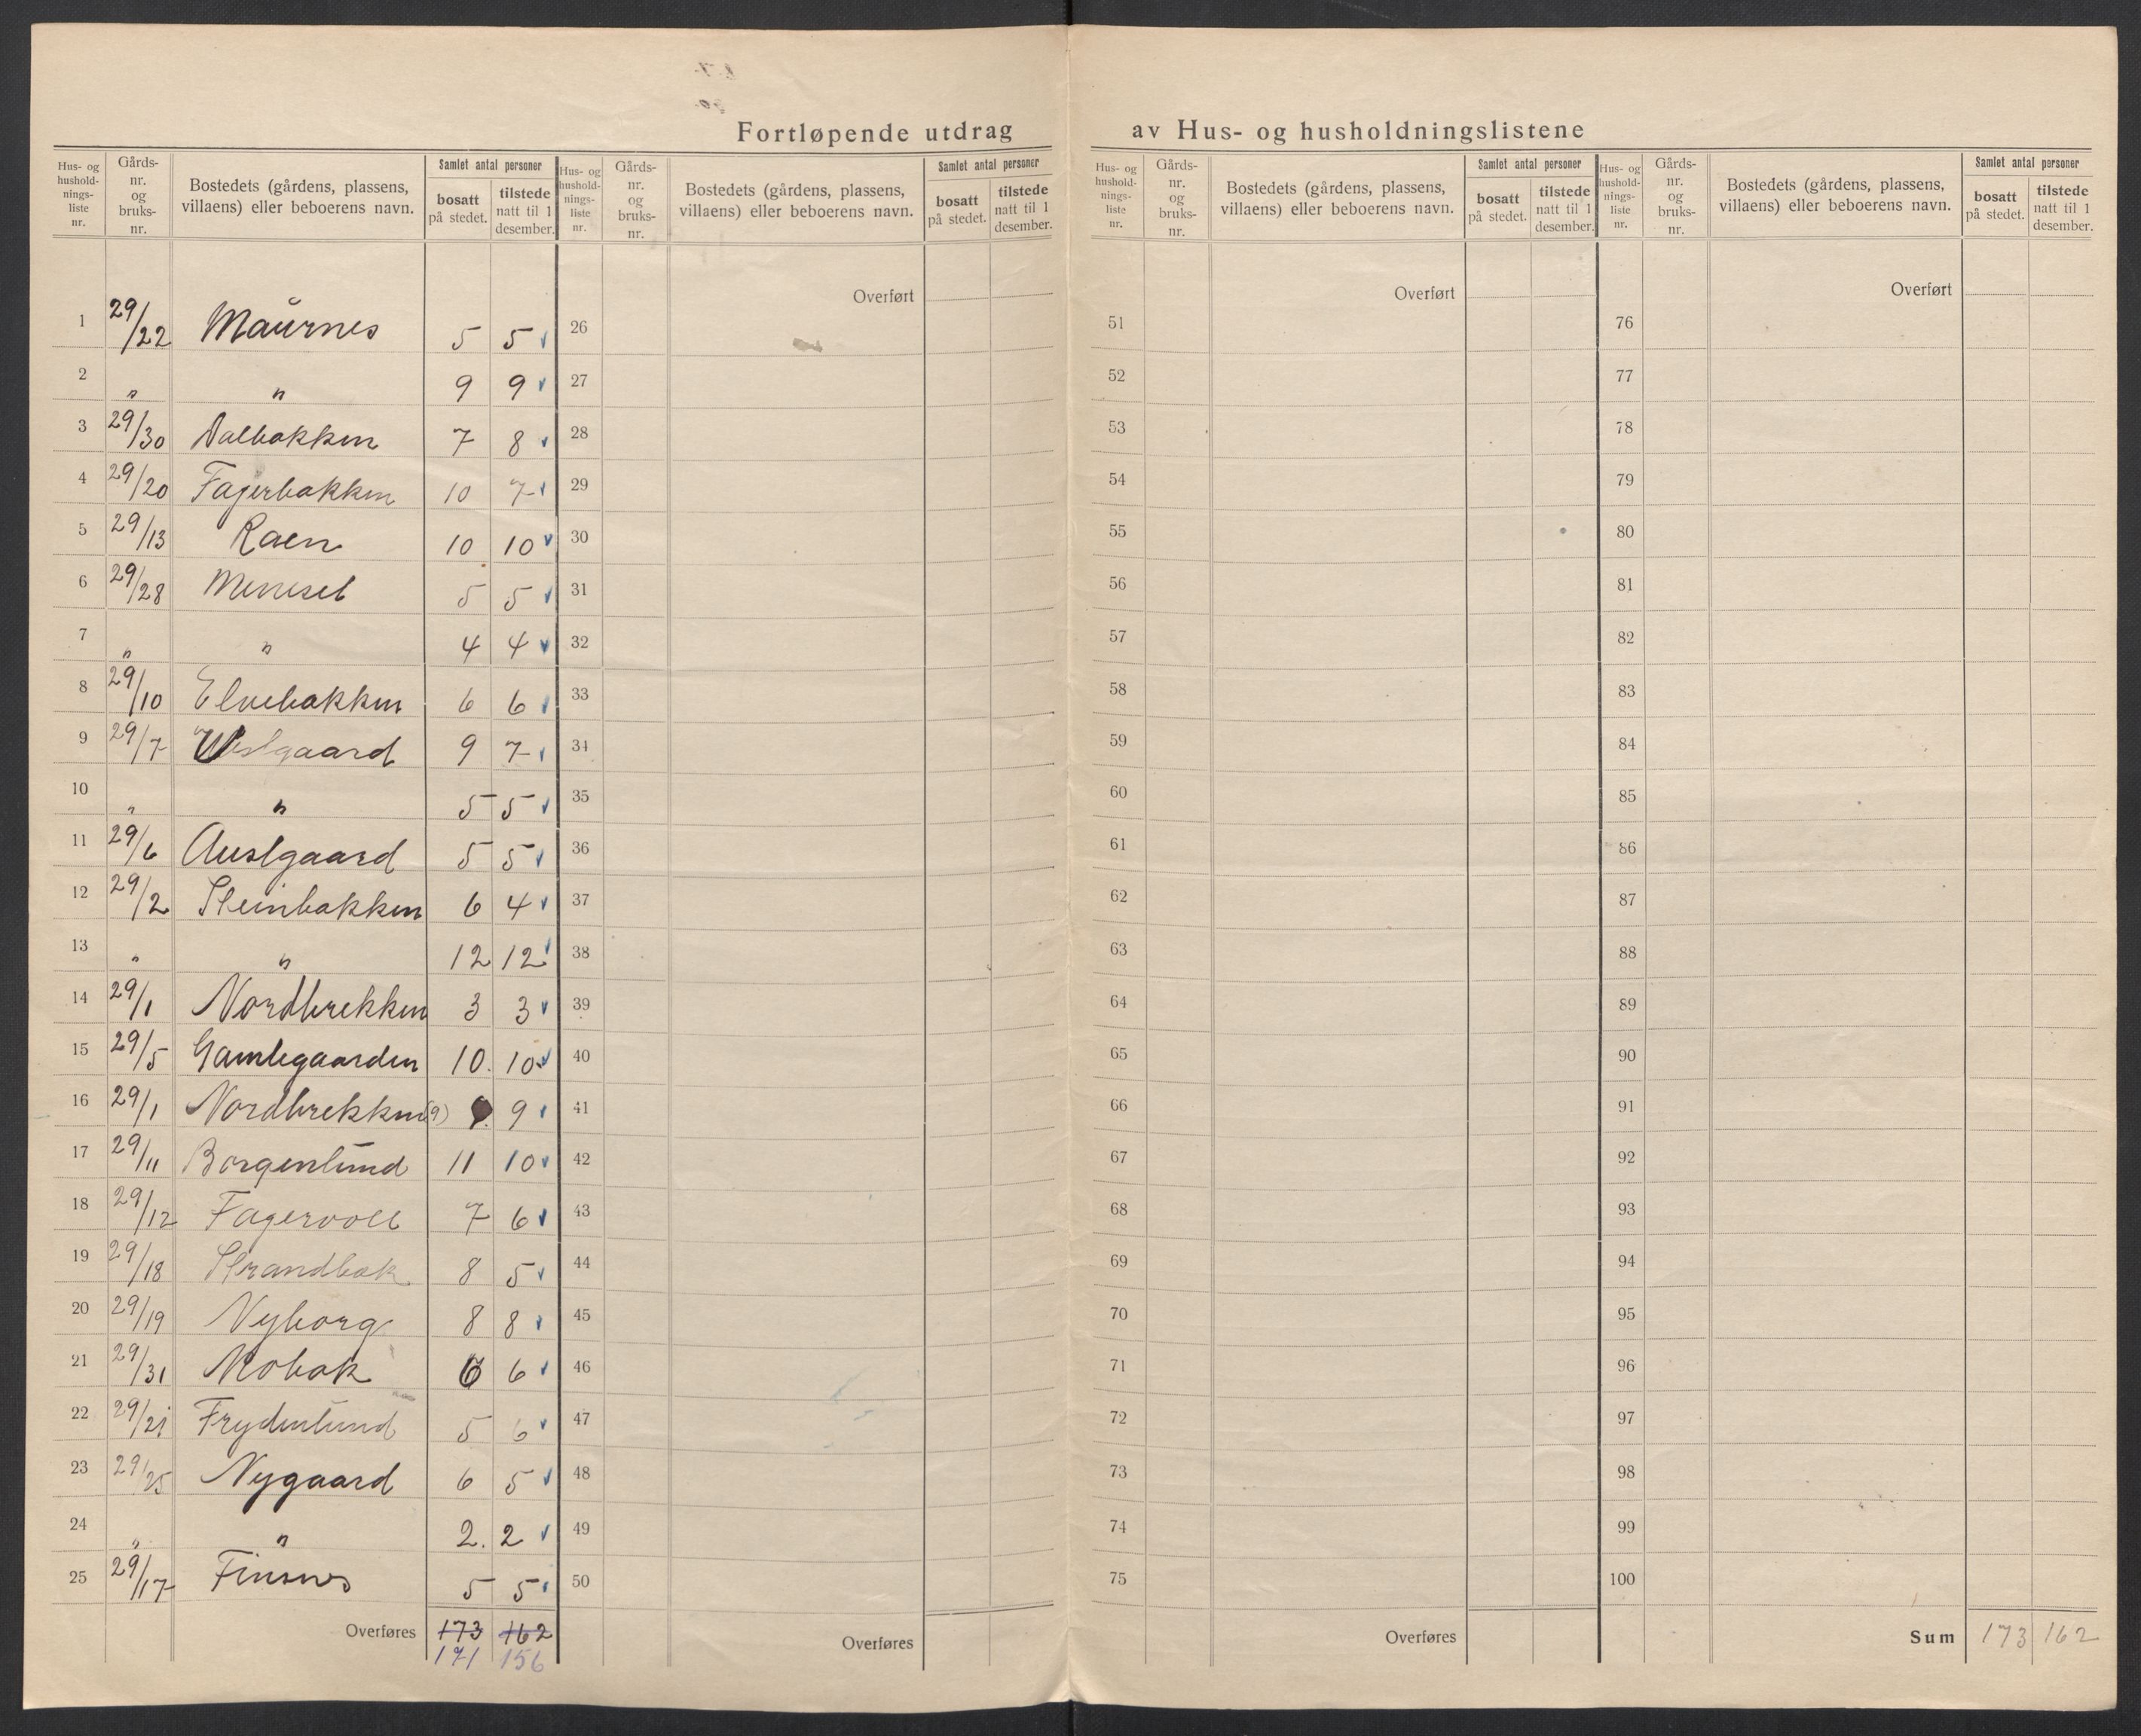 Fortløpende utdrag av Hus- og husholdningslistene
Hus- og husholdningsliste nr. | Gårds- nr. og bruks- nr. | Bostedets (gårdens, plassens, villaens) eller beboerens navn. | Samlet antal personer | bosatt på stedet. | tilstede natt til 1 desember.
1 29/22 Maurnes 5 5
2 " " 9 9
3 29/30 Dalbakken 7 8
4 29/20 Fagerbakken 10 7
5 29/13 Raen 10 10
6 29/28 5 5
7 " " 4 4
8 29/10 Elvebakken 6 6
9 29/7 Vestgaard 9 7
10 " " 5 5
11 29/6 Austgaard 5 5
12 29/2 Steinbakken 6 4
13 " " 12 12
14 29/1 Nordbrekken 3 3
15 29/5 Gamlegaarden 10. 10
16 29/1 Nordbrekken (9) 9. 9
17 29/11 Borgenlund 11 10
18 29/12 Fagervoll 7 6
19 29/18 Strandbak. 8 5
20 29/19 Nyborg 8 8
21 29/31 Mobak 6 6
22 29/21 Frydenlund 5 6
23 29/25 Nygaard 6 5
24 " " 2. 2
25 29/17 Finsnes 5 5
Overføres 173 162
171 156
Hus- og husholdningsliste nr. | Gårds- nr. og bruks- nr. | Bostedets (gårdens, plassens, villaens) eller beboerens navn. | Samlet antal personer | bosatt på stedet. | tilstede natt til 1 desember.
Overført
26
27
28
29
30
31
32
33
34
35
36
37
38
39
40
41
42
43
44
45
46
47
48
49
50
Overføres
Hus- og husholdningsliste nr. | Gårds- nr. og bruks- nr. | Bostedets (gårdens, plassens, villaens) eller beboerens navn. | Samlet antal personer | bosatt på stedet. | tilstede natt til 1 desember.
Overført
51
52
53
54
55
56
57
58
59
60
61
62
63
64
65
66
67
68
69
70
71
72
73
74
75
Overføres
Hus- og husholdningsliste nr. | Gårds- nr. og bruks- nr. | Bostedets (gårdens, plassens, villaens) eller beboerens navn. | Samlet antal personer | bosatt på stedet. | tilstede natt til 1 desember.
Overført
76
77
78
79
80
81
82
83
84
85
86
87
88
89
90
91
92
93
94
95
96
97
98
99
100
Sum 173 162